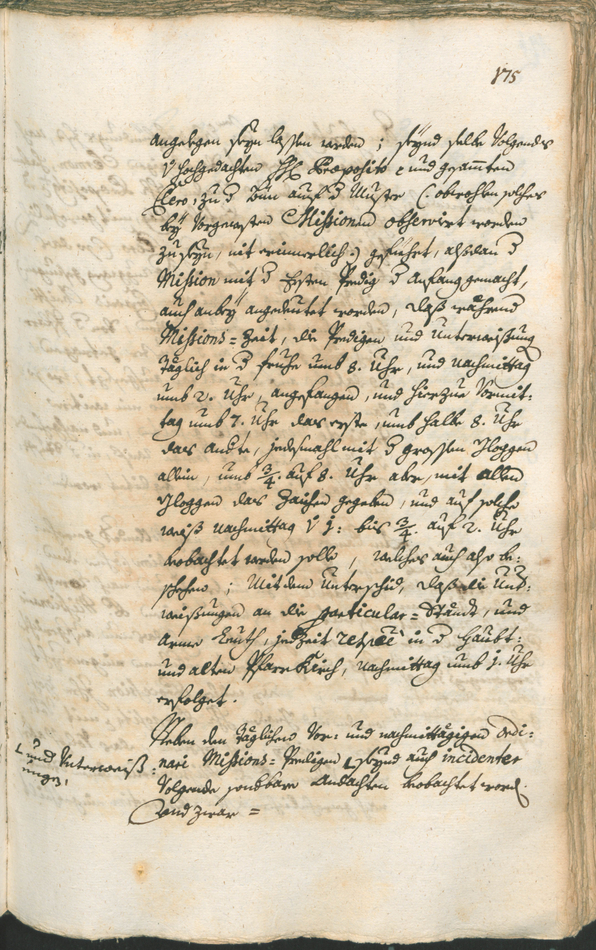 175
angelegen seyn lassen werden ; seynd selbe Volgends
V hochgedachten HH. Praeposito und gesamten
Clero, zu d Bün auf d Muster (: obwohlen solches
bey Vorgewesten Missionen observirt worden
zu seyn, nit erinnerlich :) geführt, alsdan d
Mission mit d Ersten Predig d Anfang gemacht,
auch anbey angedeutet worden, daß während
Missions= Zeit, die Predigen und Unterweisung
täglich in d frühe umb 8. Uhr, und nachmittag
umb 2. Uhr, angefangen, und hierzue Vormit:
tag umb 7. Uhr das erste, umb halbe 8. Uhr
das andte, jedesmahl mit d grossen Gloggen
allein, umb 3/4 auf 8. Uhr aber, mit allen
Gloggen das Zaichen gegeben, und auf solche
weiß nachmittag V 1: bis 3/4 auf 2. Uhr
beobachtet werden solle, welches auch also be:
schehen ; Mit dem Unterschid, daß die Und:
weisungen an die particular= Ständt, und
Arme Leuth, jedzeit in d Haubt:
und alten Pfarr Kirch, nachmittag umb 1. Uhr
erfolget.
Neben den täglichen Vor: und nachmittägigen Ordi:
nari Missions= Predigen seynd auch incidenter
und Unterweiß:
ungen,
Volgende sondbare Andachten beobachtet word.
Und zwar =